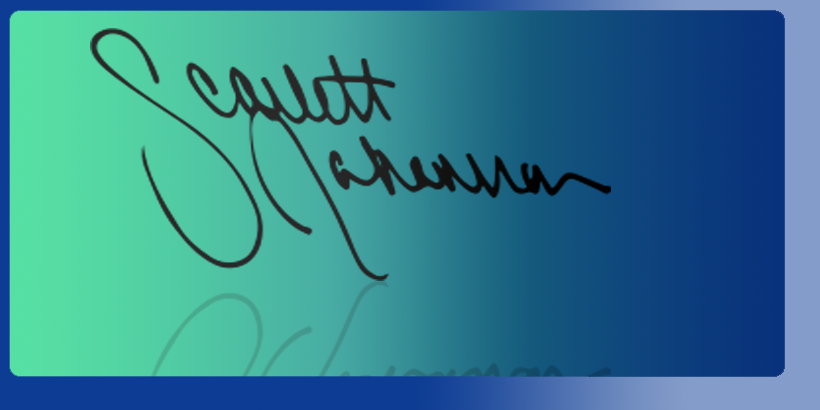 Scarlett
Johansson